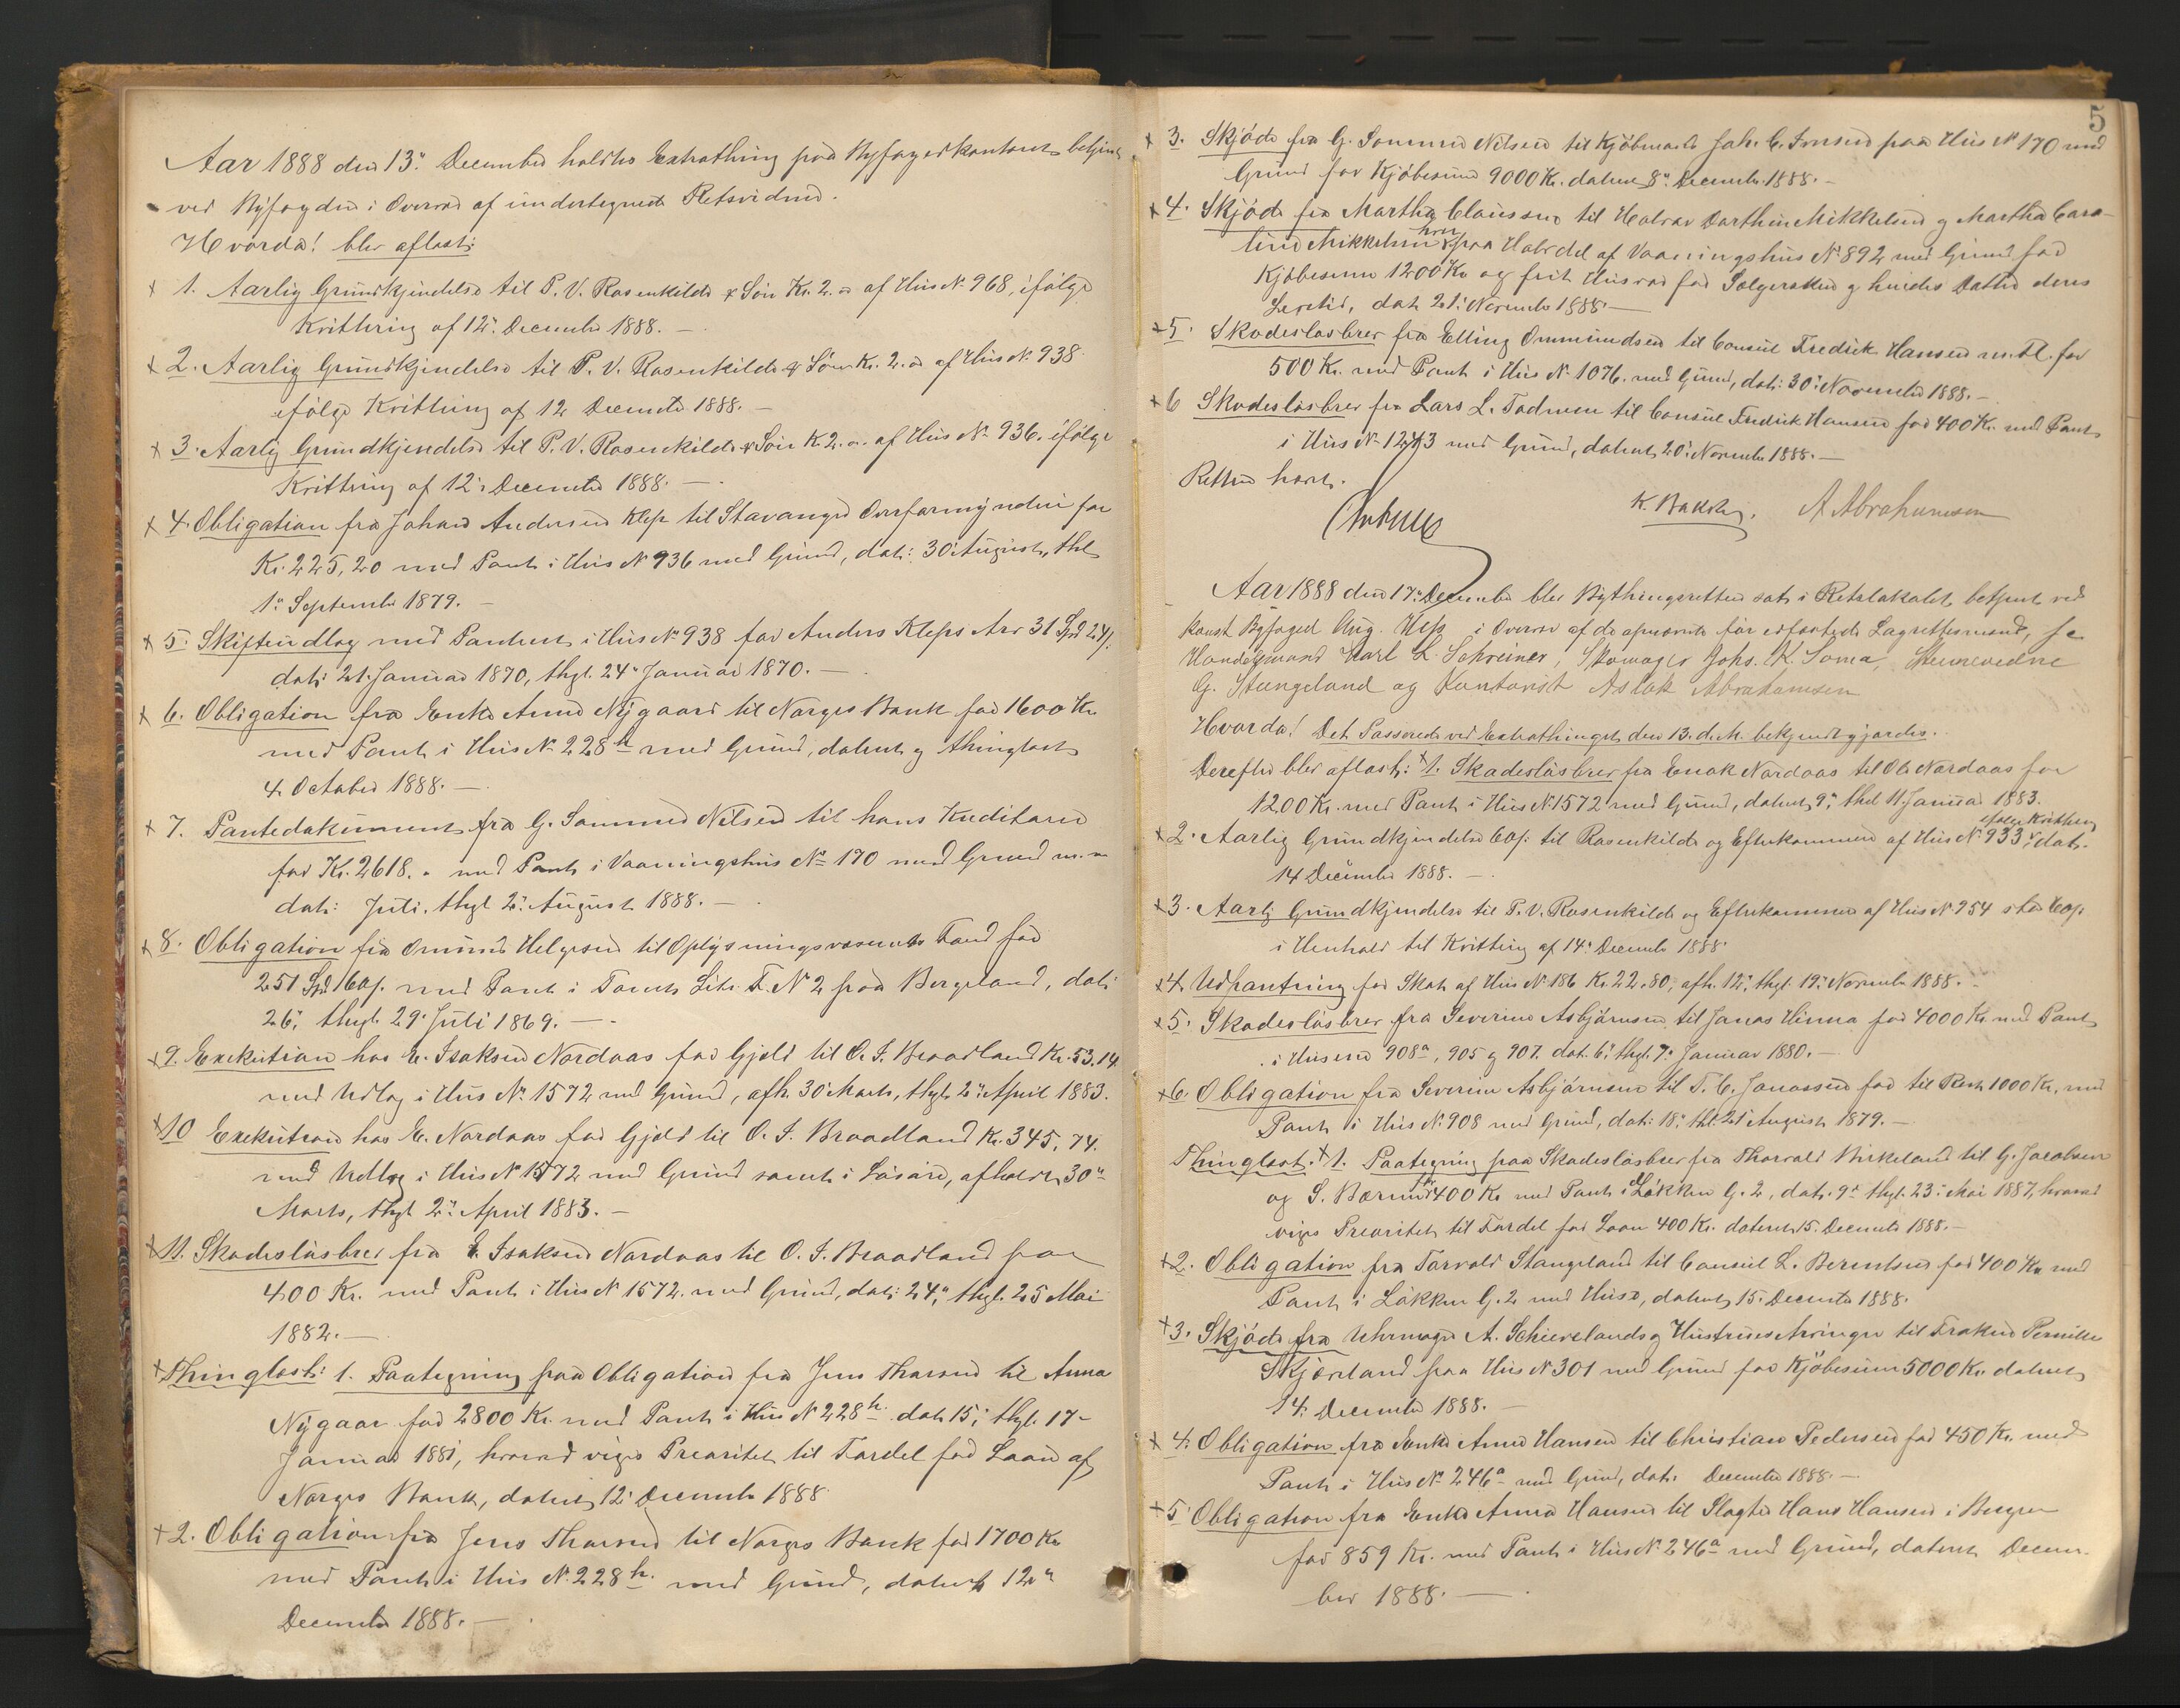 Aar 1888 den 13de December holdtes Extrathing paa Byfogedkontoret betjent
ved Byfogden i Overvær af undertegnede Retsvidner.
Hvorda! blev aflæst:
1. Aarlig Grundkjendelse til P. V. Rosenkilde & Søn Kr. 2. af Hus No 968, ifølge
Kvittering af 12te December 1888. —
2. Aarlig Grundkjendelse til P. V. Rosenkilde & Søn Kr. 2. af Hus No 938
ifølge Kvittering af 12 December 1888. —
3. Aarlig Grundkjendelse til P. V. Rosenkilde & Søn K. 2. af Hus No 936, ifølge
Kvittering af 12te December 1888. —
4. Obligation fra Johan Andersen Klep til Stavanger Overformynderi for
Kr. 225,20 med Pant i Hus No 936 med Grund, dat: 30 August, thl
1ste September 1879. —
5. Skifteudlæg med Panteret i Hus No 938 for Anders Kleps Arv 31 Spd 24 s.
dat: 21. Januar 1870, thgl. 24de Januar 1870. —
6. Obligation fra Enke Anna Nygaard til Norges Bank for 1600 Kr
med Pant i Hus No 228 h med Grund, dateret og thinglæst
4 October 1888. —
7. Pantedokument fra G. Sømme Nilsen til hans Kreditorer
for Kr. 2618. med Pant i Vaaningshus No 170 med Grund m. m
dat: Juli, thgl 2. August 1888. —
8. Obligation fra Omund Helgesen til Oplysningsvæsenets Fond for
251 Spd 60 s. med Pant i Tomt Litr. F. No 2 paa Bergeland, dat:
26, thgl. 29. Juli 1869. —
9. Exekution hos E. Isaksen Nordaas for Gjæld til O. I. Braadland Kr. 53.14
med Udlæg i Hus No 1572 med Grund, afh. 30 Marts, thgl. 2. April 1883.
10 Exekution hos E. Nordaas for Gjæld til O. I. Braadland Kr. 345,74.
med Udlæg i Hus No 1572 med Grund samt i Løsøre, afholdt 30te
Marts, thgl 2. April 1883. —
11. Skadesløsbrev fra E. Isaksen Nordaas til O. I. Braadland for
400 Kr. med Pant i Hus No 1572 med Grund, dat: 24, thgl. 25 Mai
1882. —
Thinglæst: 1. Paategning paa Obligation fra Jens Thorsen til Anna
Nygaar for 2800 Kr. med Pant i Hus No 228 h. dat 15, thgl. 17
Januar 1881, hvorved viges Prioritet til Fordel for Laan af
Norges Bank, dateret 12. December 1888
2. Obligation fra Jens Thorsen til Norges Bank for 1700 Kr
med Pant i Hus No 228 h. med Grund, dateret 12te
December 1888. —
5
3. Skjøde fra G. Sømme Nilsen til Kjøbmand Joh. C. Iversen paa Hus No 170 med
Grund for Kjøbesum 9000 Kr. dateret 8. December 1888. —
4. Skjøde fra Martha Clausen til Halvar Dorthin Mikkelsen og Martha Caro-
line Mikkelsen paa Halvdel af Vaaningshus No 892 med Grund for
Kjøbesum 1200 Kr og frit Husvær for Sælgersken og hendes Datter deres
Levetid, dat 21. November 1888. —
5. Skadesløsbrev fra Elling Ommundsen til Consul Fredrik Hansen m. Fl. for
500 Kr. med Pant i Hus No 1076. med Grund, dat: 30. November 1888. —
6 Skadesløsbrev fra Lars L. Todnem til Consul Fredrik Hansen for 400 Kr. med Pant
i Hus No 1243 med Grund, dateret 20. November 1888. —
Retten hævet.
A Abrahamsen
Aar 1888 den 17. December blev Bythingsretten sat i Retslokalet betjent ved
konst Byfoged Aug. i Overvær af de opnævnte før edfæstede Lagrettesmænd,
Handelsmand Karl L. Schreiner, Skomager Johs. K. Soma,
G. Stangeland og Kontorist Aslak Abrahamsen
Hvorda! Det Passerede ved Extrathinget den 13. d. M. bekjendtgjordes.
Derefter blev aflæst: 1. Skadesløsbrev fra Enok Nordaas til Ole Nordaas for
1200 Kr. med Pant i Hus No 1572 med Grund, dateret 9, thl 11. Januar 1883.
ifølge Kvittering
2. Aarlig Grundkjendelse 60 s. til Rosenkilde og Efterkommere af Hus No 933 dat.
14 December 1888. —
3. Aarlig Grundkjendelse til P. V. Rosenkilde og Efterkommere af Hus No 954 stor 60 s.
i Henhold til Kvittering af 14. December 1888.
4. Udpantning for Skat af Hus No 186 Kr. 22.80, afh. 12, thgl. 19. November 1888. —
5. Skadesløsbrev fra Severine Asbjørnsen til Jonas Hinna for 4000 Kr. med Pant
i Husene 908 a, 905 og 907. dat. 6. thgl. 7. Januar 1880. —
6. Obligation fra Severine Asbjørnsen til T. C. Jonassen for til Rest 1000 Kr, med
Pant i Hus No 908 med Grund, dat: 18. thl: 21 August 1879. —
Thinglæst: 1. Paategning paa Skadesløsbrev fra Thorvald Birkeland til G. Jacobsen
og S. for 400 Kr med Pant i Løkken G. 2, dat: 9. thgl. 23. Mai 1887, hvorved
viges Prioritet til Fordel for Laan 400 Kr. dateret 15. December 1888. —
2. Obligation fra Torvald Stangeland til Consul L. Berentsen for 400 Kr med
Pant i Løkken G. 2 med Huse, dateret 15. December 1888.
3. Skjøde fra Uhrmager A. Schievelands og Hustrues Arvinger til Frøken Pernille
Skjæveland paa Hus No 301 med Grund for Kjøbesum 5000 Kr. dateret
14. December 1888. —
4. Obligation fra Enke Anna Hansen til Christian Pedersen for 450 Kr. med
Pant i Hus No 246 a med Grund, dat: December 1888. —
5 Obligation fra Enke Anna Hansen til Slagter Hans Hansen i Bergen
for 859 Kr. med Pant i Hus No 246 a med Grund, dateret Decem-
ber 1888. —